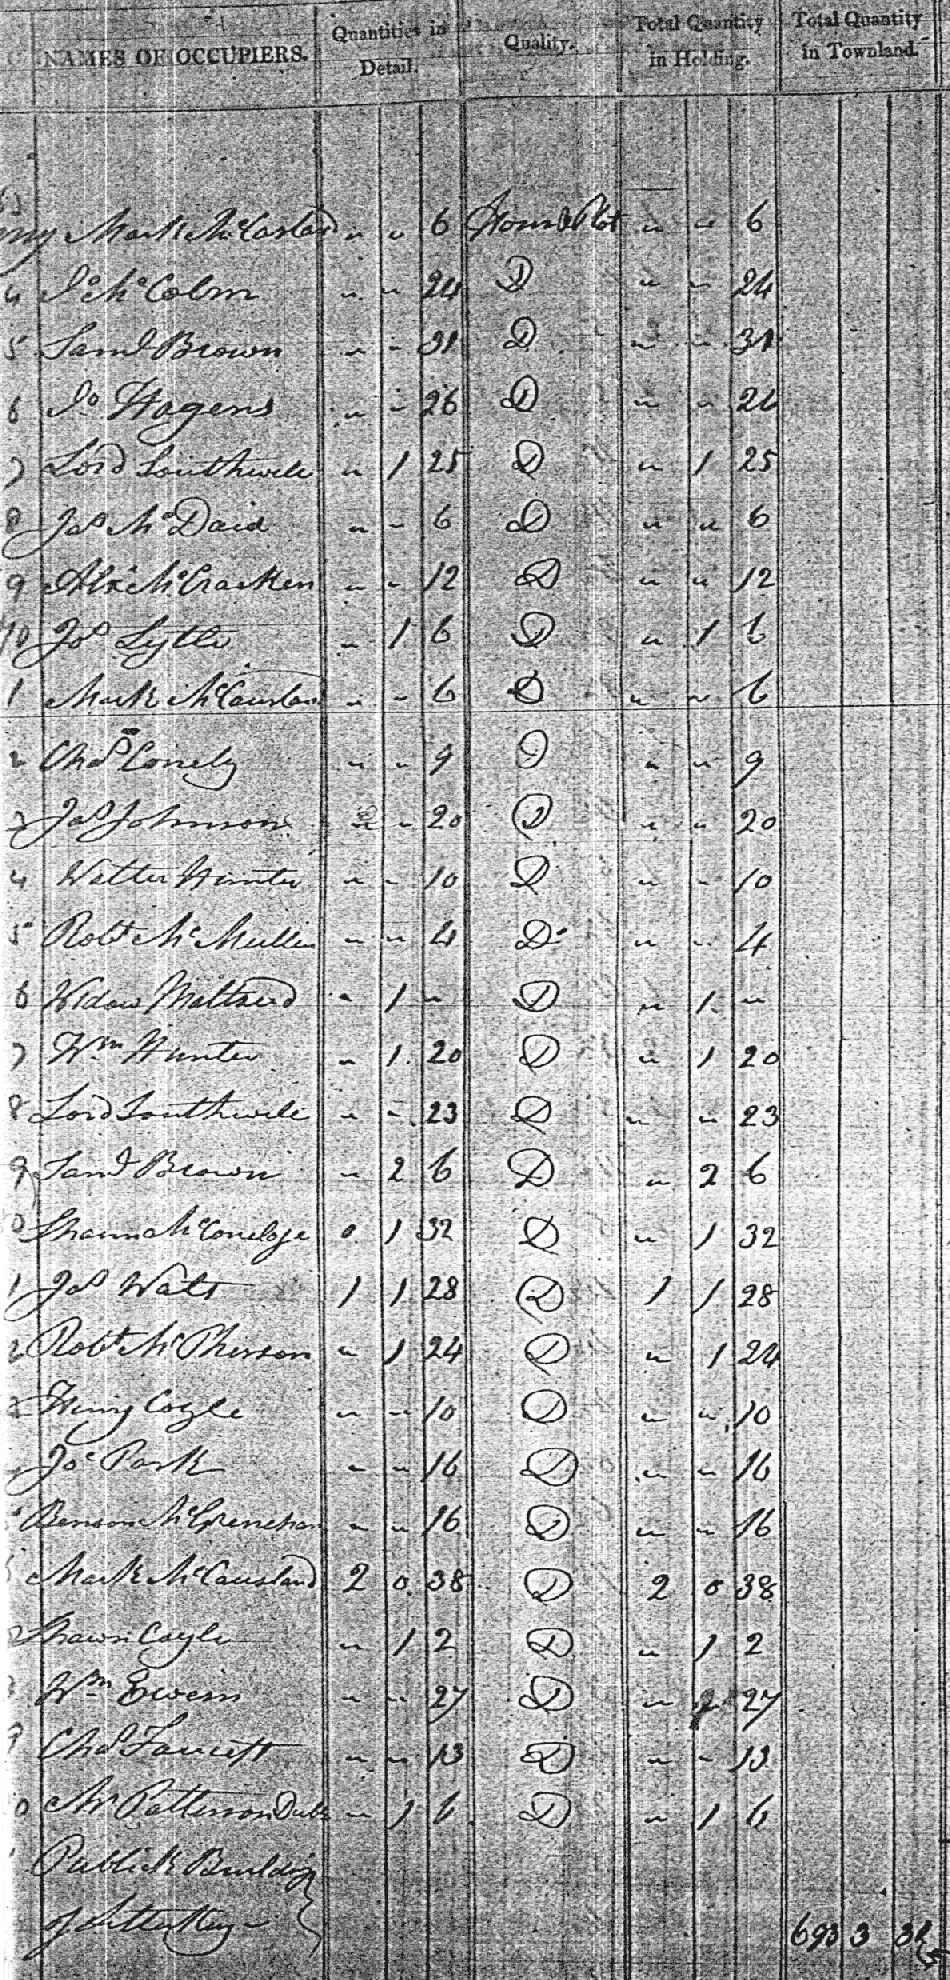 NAMES OF OCCUPIERS. Quantities in Detail. Quality. Total Quantity in Holding. Total Quantity in Townland.
Mark McCasland " " 6 House Plot " " 6
4 Jo McColm " " 24 D " " 24
5 Saml Brown " " 31 D " " 31
6 Jo Hagens " " 26 D " " 26
7 Lord Southwell " 1 25 D " 1 25
8 Jas McDaid " " 6 D " " 6
9 Alex McCracken " " 12 D " " 12
10 Jos Lytle " 1 6 D " 1 6
1 Mark McCausland " " 6 D " " 6
2 Chas " " 9 D " " 9
3 Jas Johnson " " 20 D " " 20
4 Walter Hunter " " 10 D " " 10
5 Robt McMullin " " 4 D " " 4
6 Widow " 1 " D " 1 "
7 Wm Hunter " 1 20 D " 1 20
8 Lord Southwell " " 23 D " " 23
9 Saml Brown " 2 6 D " 2 6
0 0 1 32 D " 1 32
1 Jas Wats 1 1 28 D 1 1 28
2 Robt McPherson " 1 24 D " 1 24
Henry Coyle " " 10 D " " 10
Jos Park " " 16 D " " 16
Benson " " 16 D " " 16
Mark McCausland 2 0 38 D 2 0 38
Coyle " 1 2 D " 1 2
Wm " " 27 D " 27
9 Chas Faucett " " 13 D " " 13
0 Mr Patterson " 1 6 D " 1 6
Publick Buildings
of Letterkeny 693 3